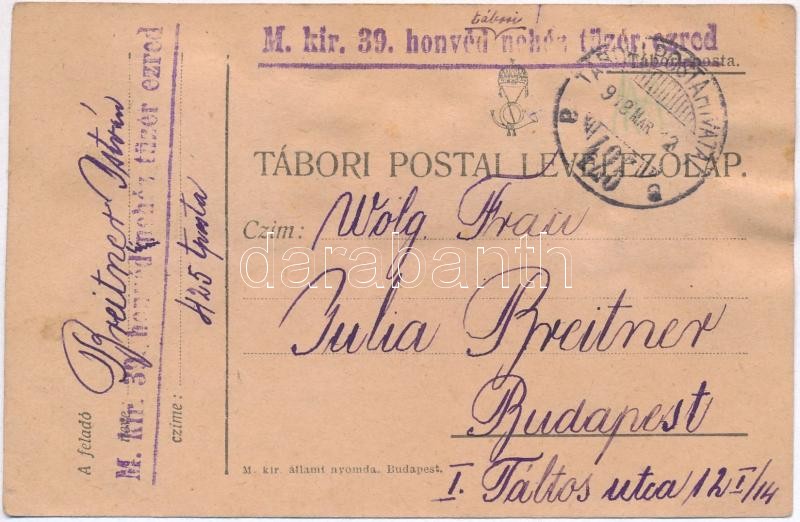 tábori
M. kir. 39. honvéd nehéz tüzér ezred
Tábori posta.
TÁBORI POSTAHIVATAL
918 MÁR
a a
TÁBORI POSTAI LEVELEZŐLAP.
Czim: Wolg. Frau
Julia Breitner
Budapest
I. Táltos utca 12 I/14
M. kir. állami nyomda. Budapest.
A feladó
neve: Breitner István
M. kir. 39. honvéd nehéz tüzér ezred
czime: 425 tposta
darabanth